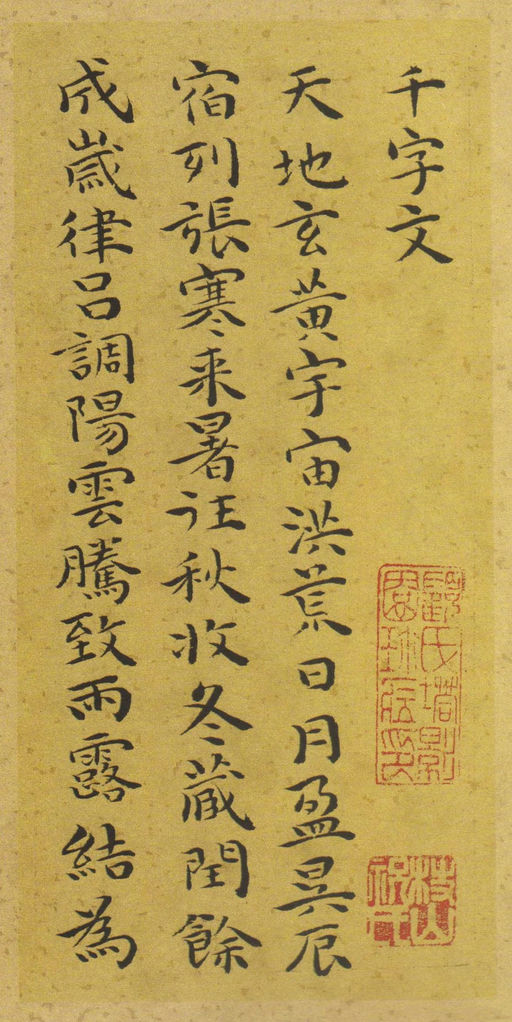 千字文
天地玄黃宇宙洪荒日月盈昃辰
宿列張寒来暑往秋收冬蔵閏餘
成歲律呂調陽雲騰致雨露結為